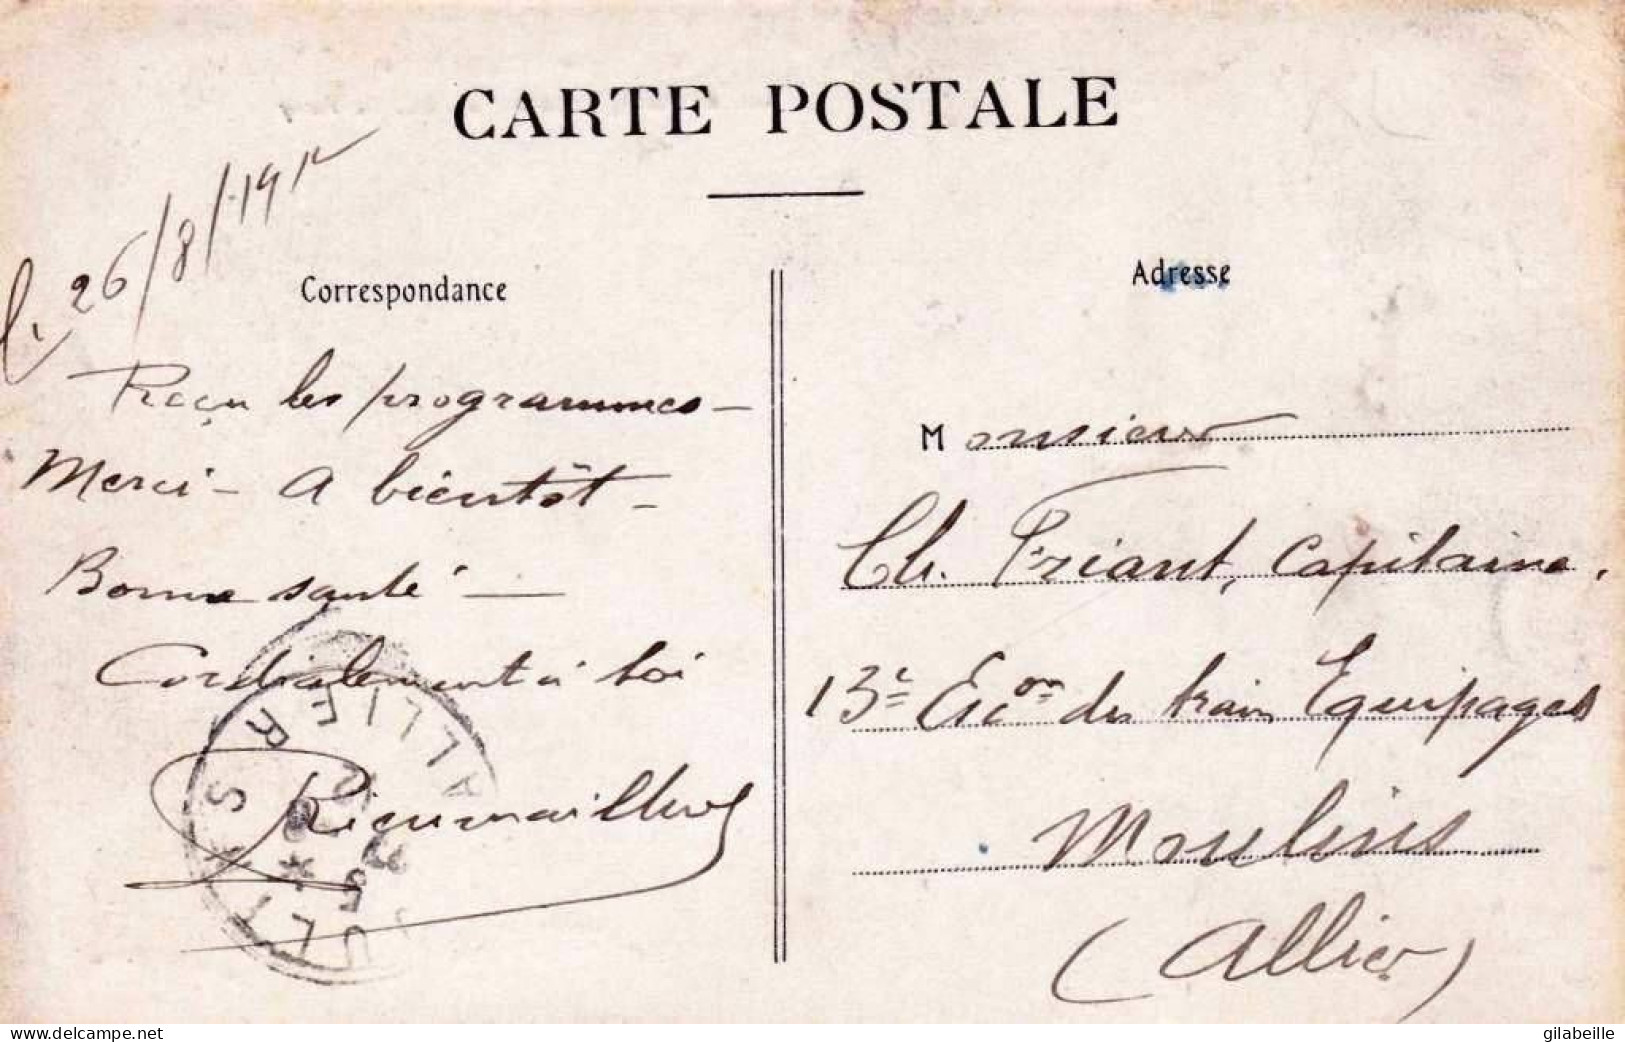 CARTE POSTALE
26/8/191
Correspondance
Reçu les programmes –
Merci – A bientôt –
Bonne santé –
Cordialement à toi
Adresse
Monsieur
Ch. Friant, Capitaine.
13e Eson du train Equipages
Moulins
(Allier)
MOULINS ALLIER
www.delcampe.net
gilabeille